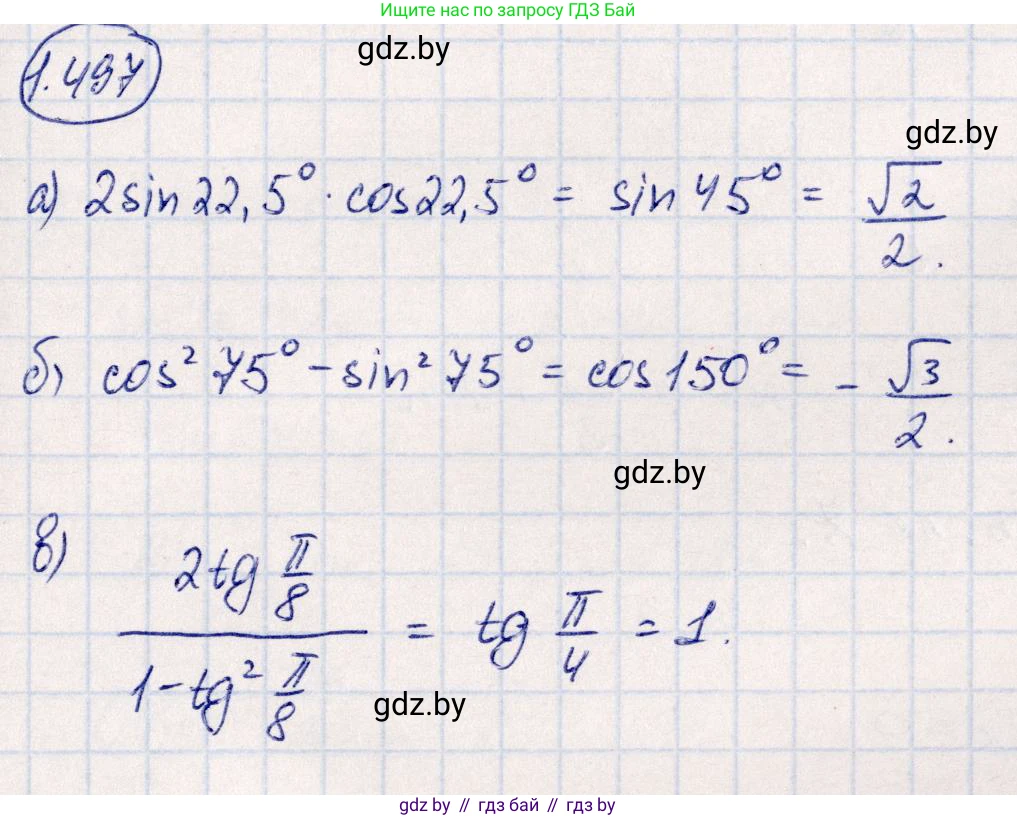 Ищите нас по запросу ГДЗ Бай
1.497
gdz.by
gdz.by
а) 2sin22,5° · cos22,5° = sin45° = √2/2.
б) cos² 75° - sin² 75° = cos150° = - √3/2.
gdz.by
в) 2tg π/8 / 1-tg² π/8 = tg π/4 = 1.
gdz.by
gdz by // гдз бай // гдз by